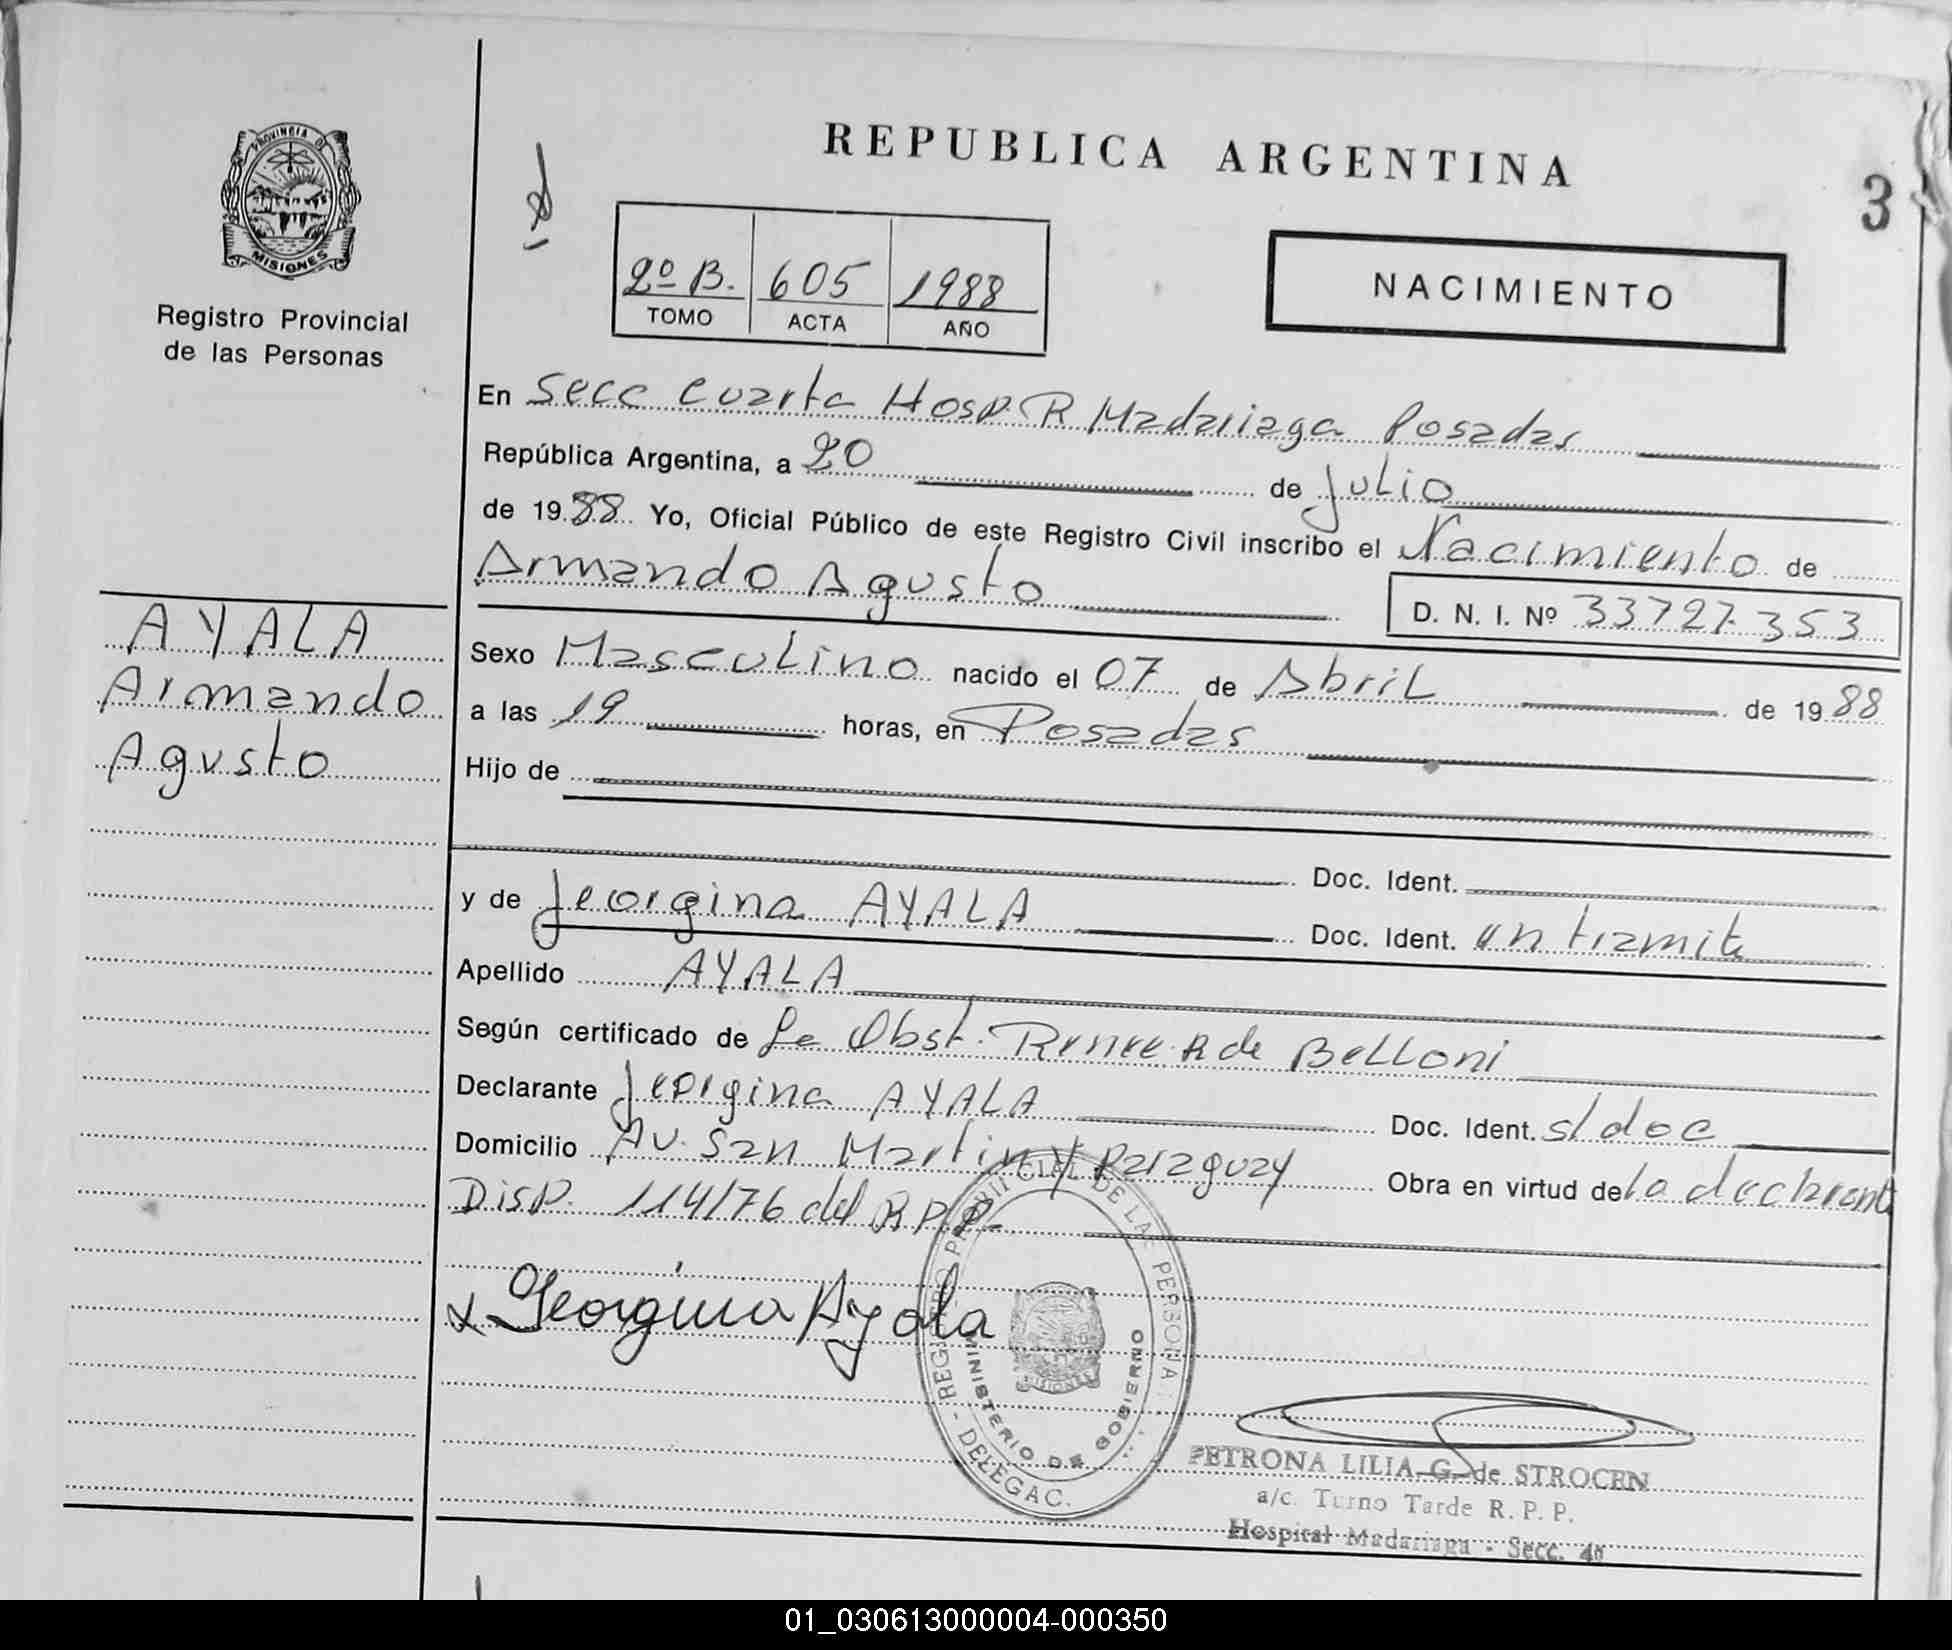 PROVINCIA DE
MISIONES
Registro Provincial
de las Personas
REPUBLICA ARGENTINA
3
2º B. 605 1988
TOMO ACTA AÑO
NACIMIENTO
En Secc cuarta Hosp. R Madariaga Posadas
República Argentina, a 20 de Julio
de 1988 Yo, Oficial Público de este Registro Civil inscribo el Nacimiento de
Armando Agusto
D. N. I. Nº 33727353
AYALA
Armando
Agusto
Sexo Masculino nacido el 07 de Abril de 1988
a las 19 horas, en Posadas
Hijo de
Doc. Ident.
y de Jeorgina AYALA Doc. Ident. en tramite
Apellido AYALA
Según certificado de La Obst. Renee R de Belloni
Declarante Jeorgina AYALA Doc. Ident. s/doc
Domicilio Av. San Martin y Paraguay Obra en virtud de la declarante
Disp. 114/76 del R P P
x Georgina Ayala
MISIONES
MINISTERIO DE GOBIERNO
DELEGAC.
PETRONA LILIA G. de STROCEN
a/c. Turno Tarde R. P. P.
Hospital Madariaga - Secc. 4ª
01_030613000004-000350